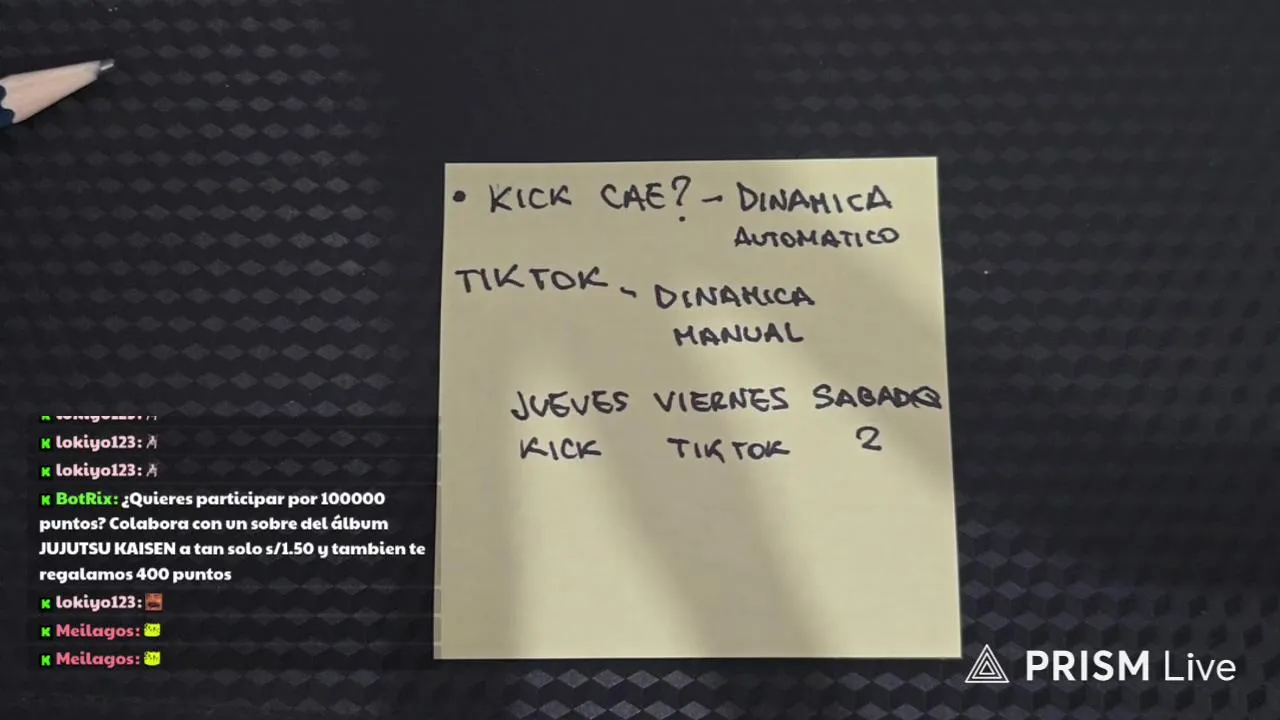 • KICK CAE? - DINAMICA
AUTOMATICO
TIKTOK - DINAMICA
MANUAL
JUEVES VIERNES SABADO
KICK TIKTOK 2
lokiyo123:
lokiyo123:
lokiyo123:
BotRix: ¿Quieres participar por 100000
puntos? Colabora con un sobre del álbum
JUJUTSU KAISEN a tan solo s/1.50 y tambien te
regalamos 400 puntos
lokiyo123:
Meilagos:
Meilagos:
PRISM Live